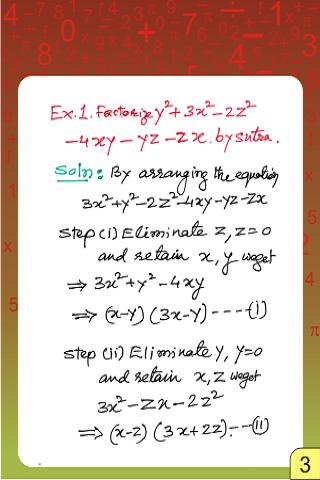 Ex.1. Factorize y²+3x²-2z²
-4xy-yz-zx. by sutra.
Soln: By arranging the equation
3x²+y²-2z²-4xy-yz-zx
step (i) Eliminate z, z=0
and retain x, y we get
⇒ 3x²+y²-4xy
⇒ (x-y) (3x-y) ----(i)
step (ii) Eliminate y, y=0
and retain x, z we get
3x²-zx-2z²
⇒ (x-z) (3x+2z).--(ii)
3